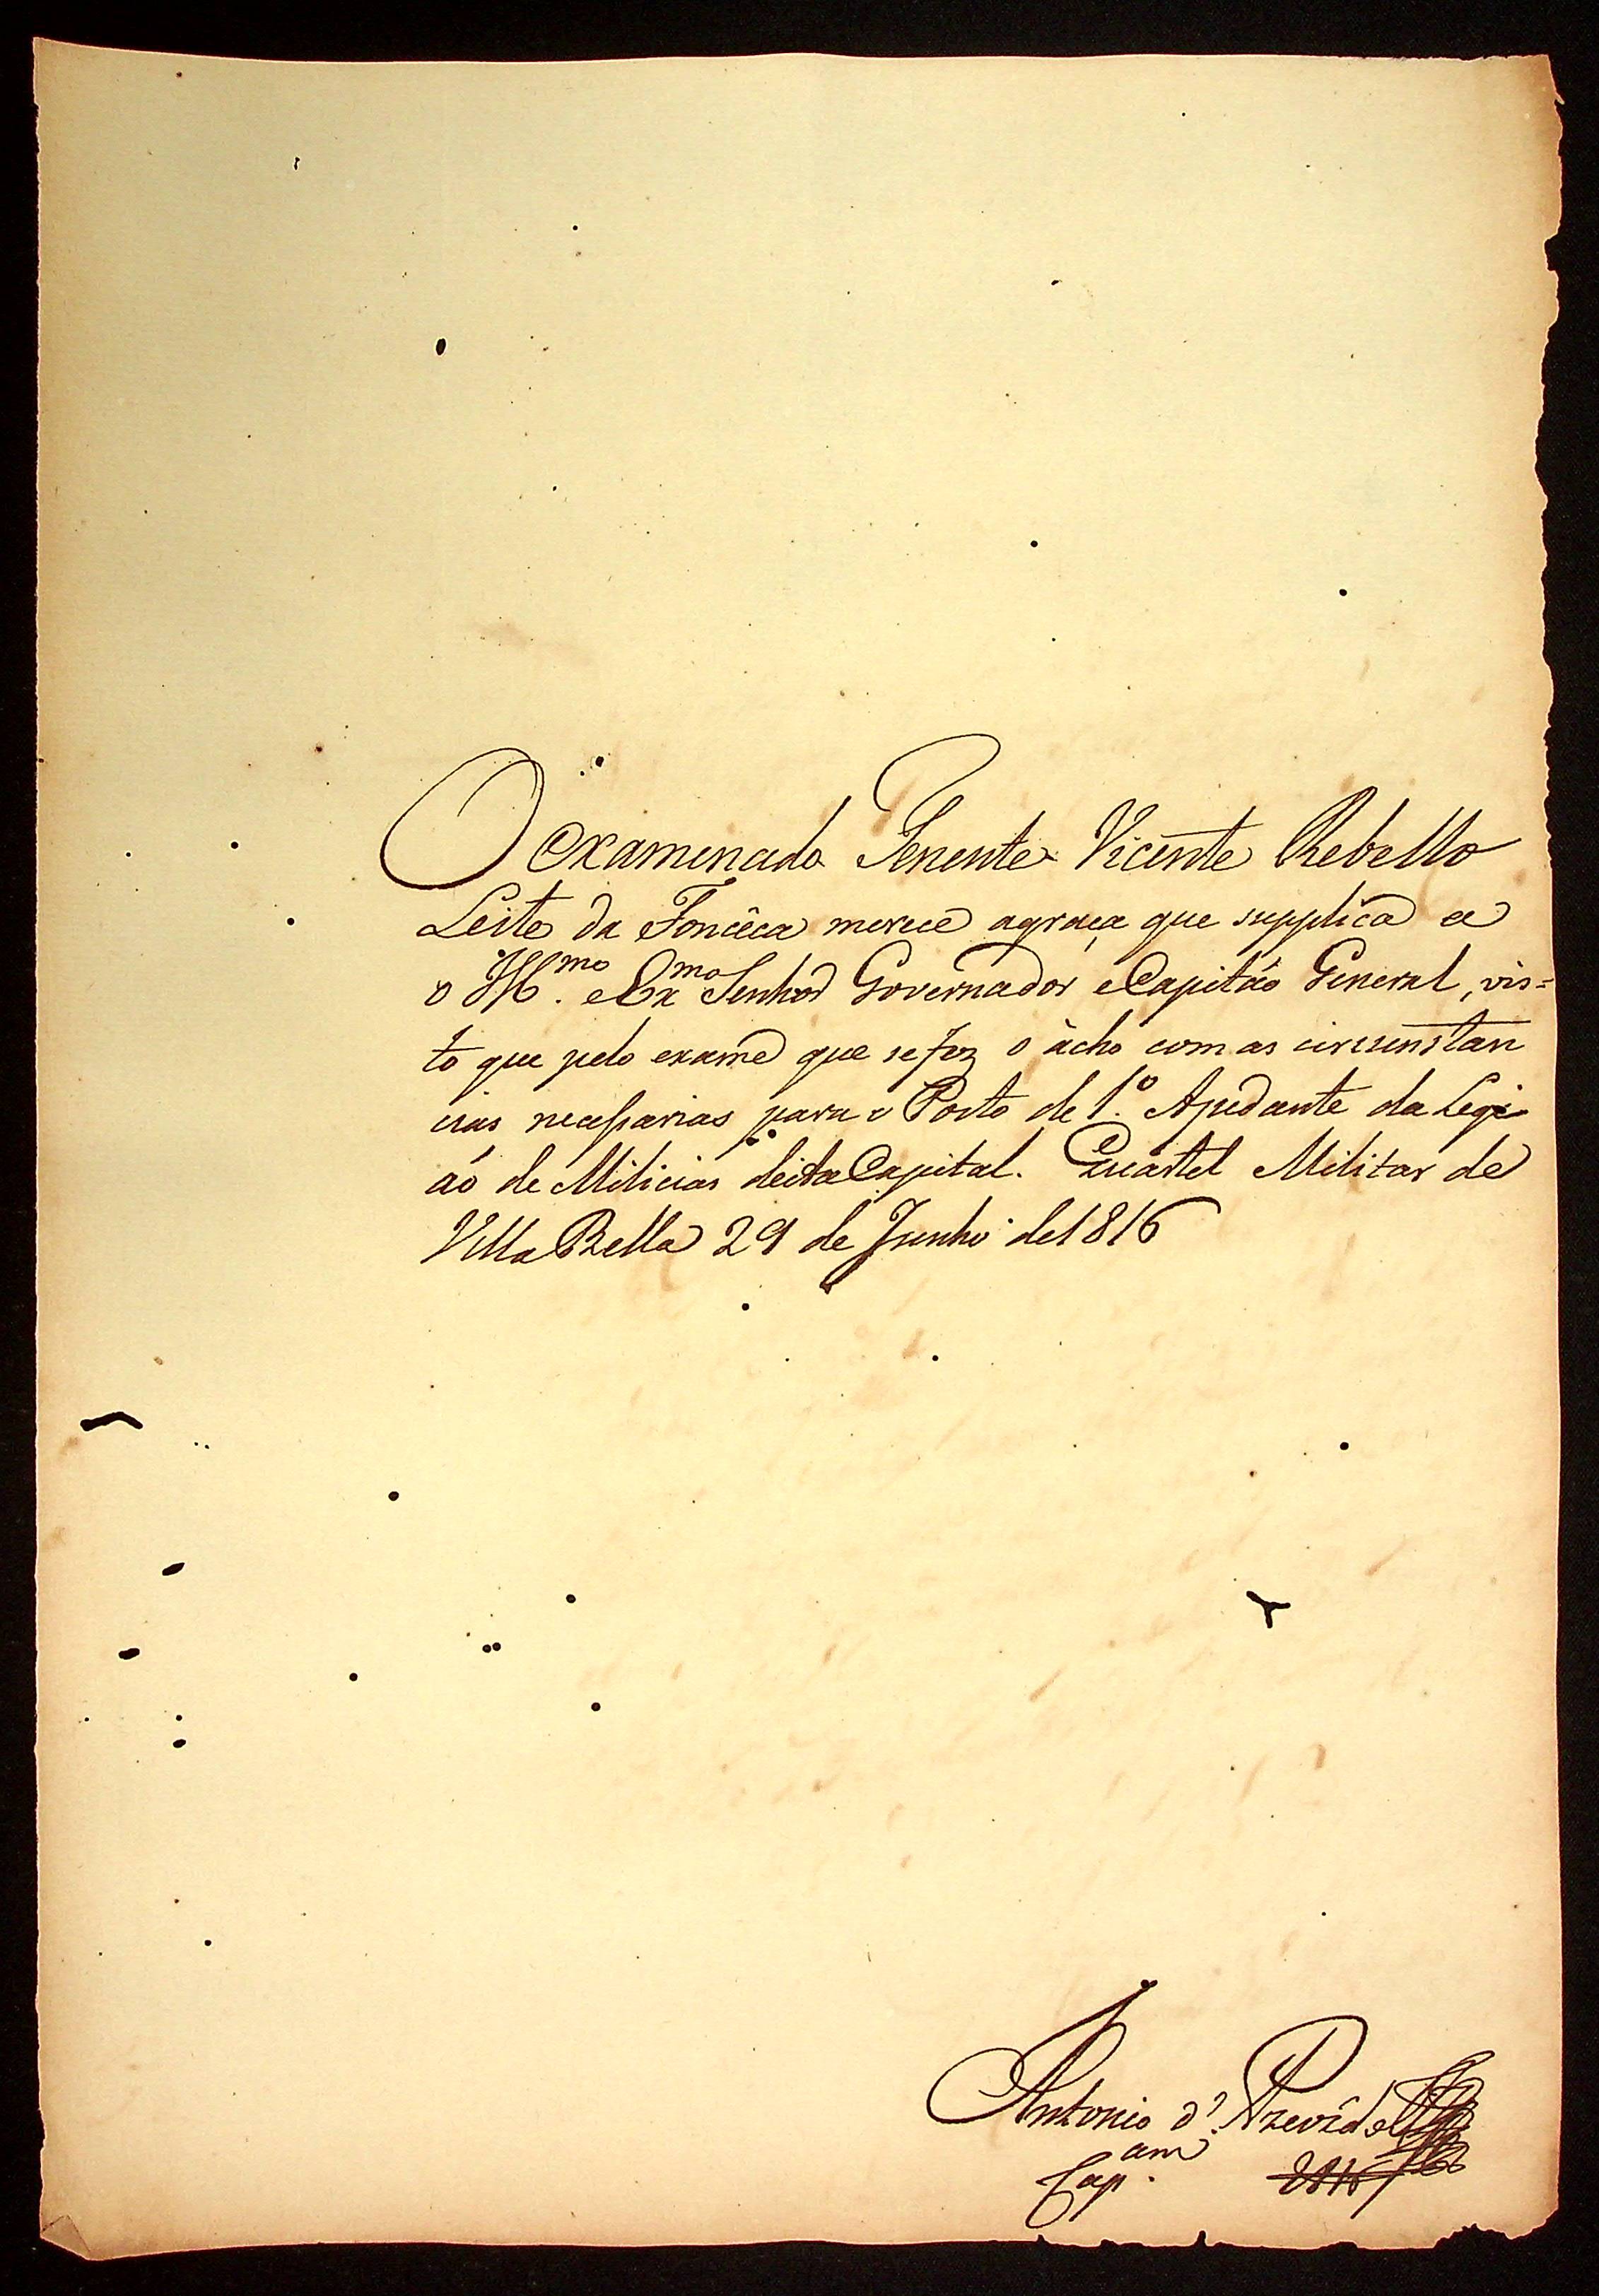 O examinado Tenente Vicente Rebello
Leite da Fonceca merece agraça que supplica a
o Ill.mo e Ex.mo Senhor Governador e Capitão General, vis=
to que pelo exame que se fez o ácho com as circunstan
cias necessarias para o Posto de 1.º Ajudante da Legi
aó de Milicias desta Capital. Quartel Militar de
Villa Bella 29 de Junho de 1816
Antonio d' Azevedo
Cap.am